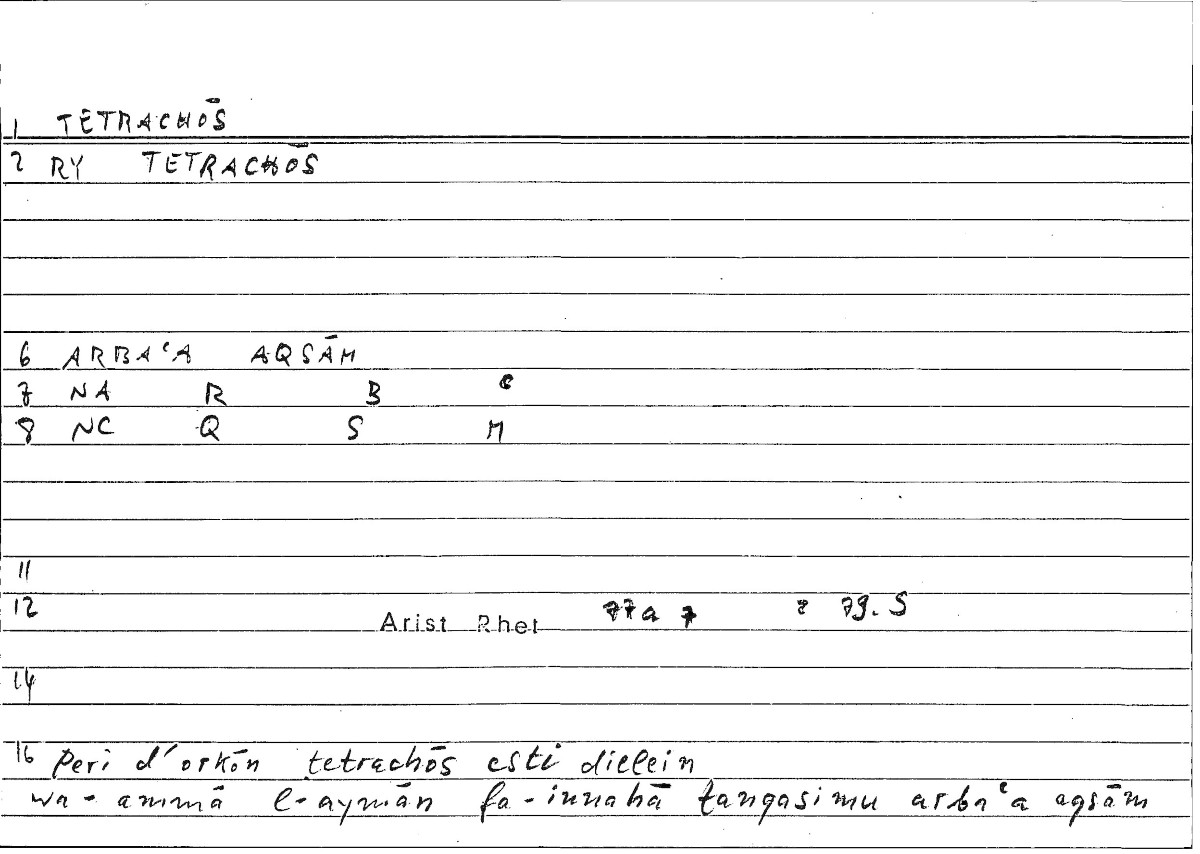 1 TETRACHŌS
2 RY TETRACHŌS
6 ARBAʿA AQSĀM
7 NA R B ʿ
8 NC Q S M
11
12 Arist Rhet 77a 7 : 79.5
14
16 Peri d'orkōn tetrachōs esti dielein
wa-ammā l-aymān fa-innahā tanqasimu arbaʿa aqsām